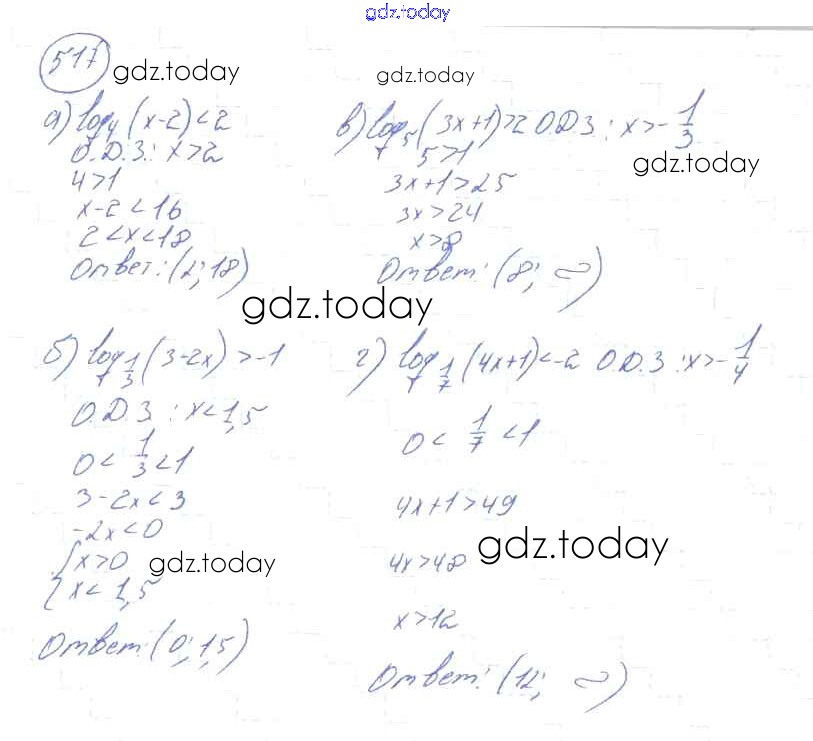 gdz.today
517 gdz.today gdz.today
а) log₄(x-2)<2
О.Д.З.: x>2
4>1
x-2<16
2<x<18
Ответ: (2; 18)
в) log₅(3x+1)>2 О.Д.З.: x>-1/3
5>1
gdz.today
3x+1>25
3x>24
x>8
Ответ: (8; ∞)
gdz.today
б) log₁/₃(3-2x)>-1
О.Д.З.: x<1,5
0<1/3<1
3-2x<3
-2x<0
{x>0
{x<1,5
gdz.today
Ответ: (0; 1,5)
г) log₁/₇(4x+1)<-2 О.Д.З.: x>-1/4
0<1/7<1
4x+1>49
gdz.today
4x>48
x>12
Ответ: (12; ∞)